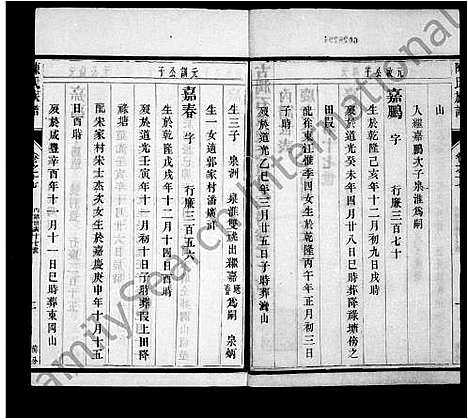 山
人繼嘉鵬次子泉淮為嗣
元啟公子
嘉鵬 字 行廉三百七十
生於乾隆己亥年十一月初九日戌時
歿於道光癸未年四月廿八日巳時葬隆祿塘傍之
田塅
配徐東江儺季四女生於乾隆丙午年正月初三日
丙子時
歿於道光乙巳年三月廿五日子時葬灣山
生三子 泉洲 泉淮雙祧出繼嘉為嗣 泉炳
生一女適郭家村潘廣
元訓公子
嘉春 字 行廉三百五六
生於乾隆戊戌年十二月十四日
歿於道光壬寅年十一月初十日子時葬段上田隆
祿塘
配朱家村朱士杰次女生於嘉慶庚申年八月十五
歿於咸豐辛酉年十一月十一日巳時葬東岡山
陳氏族譜
卷之七
FamilySearch International